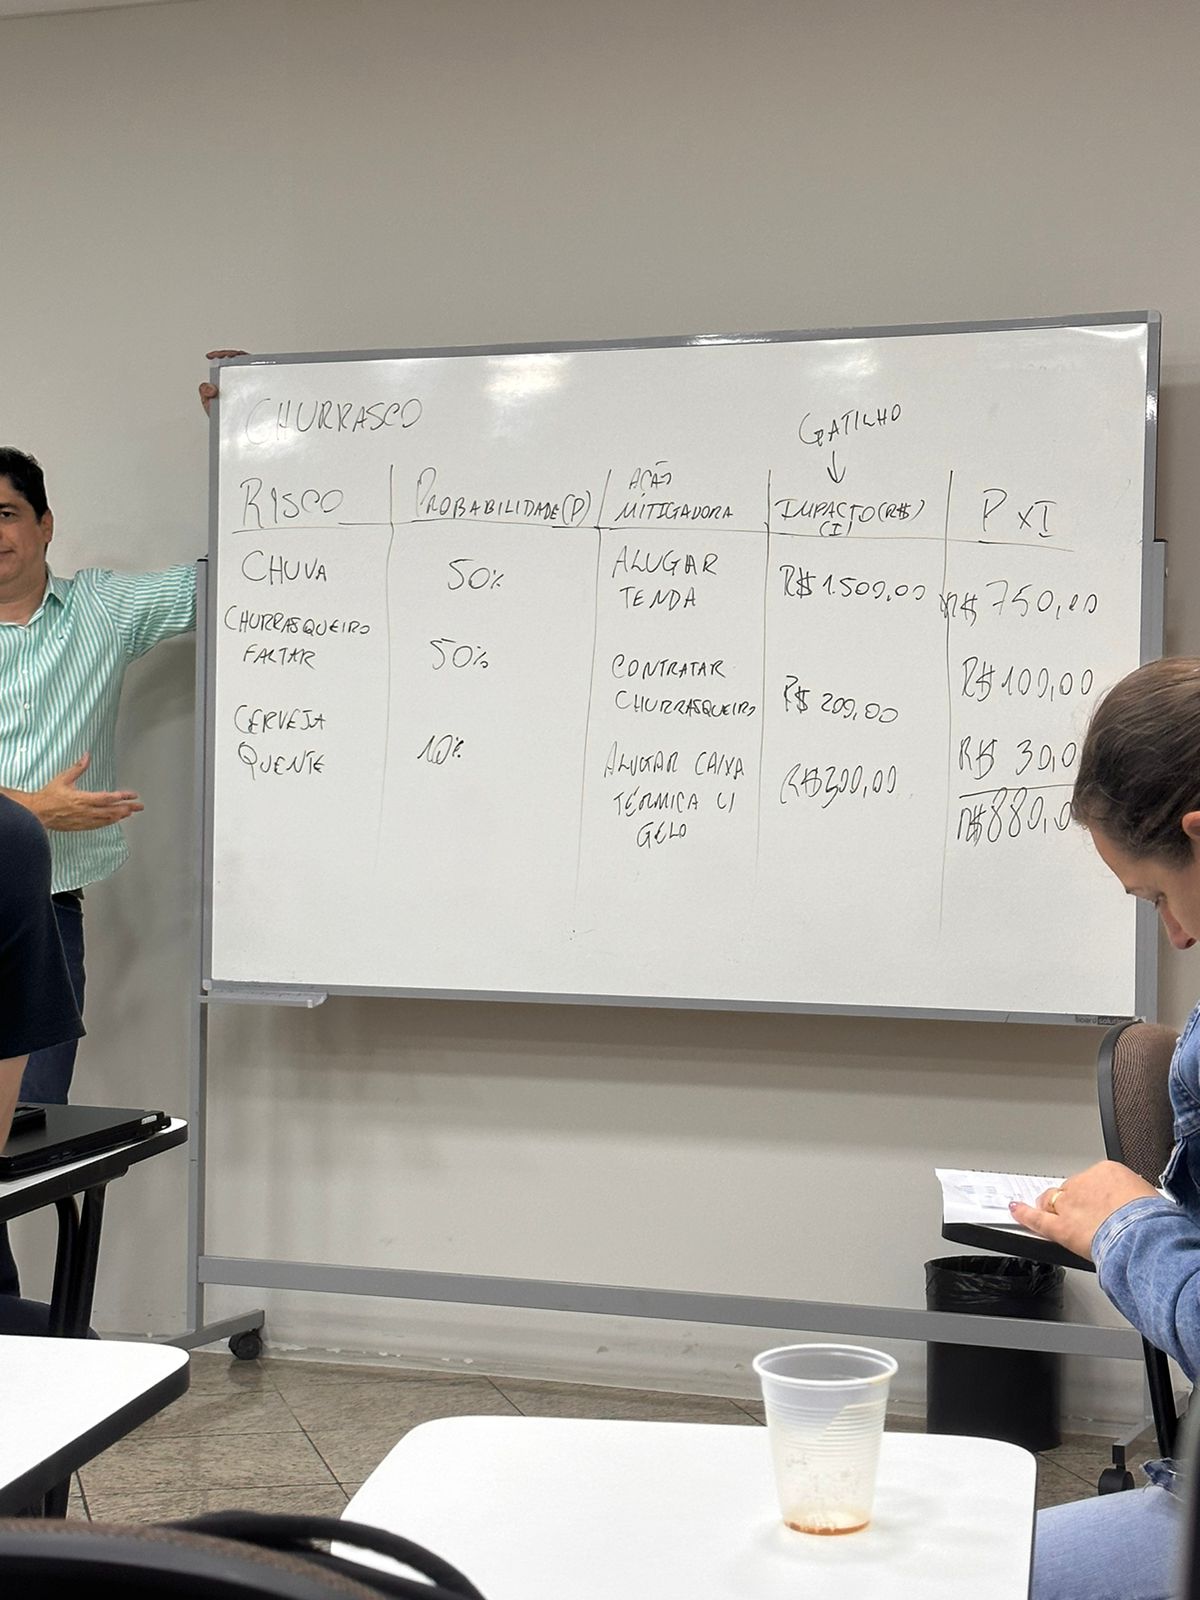 CHURRASCO
GATILHO
↓
RISCO
PROBABILIDADE (P)
AÇÃO
MITIGADORA
IMPACTO (R$)
(I)
P x I
CHUVA
50%
ALUGAR
TENDA
R$ 1.500,00
R$ 750,00
CHURRASQUEIRO
FALTAR
50%
CONTRATAR
CHURRASQUEIRO
R$ 200,00
R$ 100,00
CERVEJA
QUENTE
10%
ALUGAR CAIXA
TÉRMICA C/
GELO
R$ 300,00
R$ 30,0
R$ 880,0